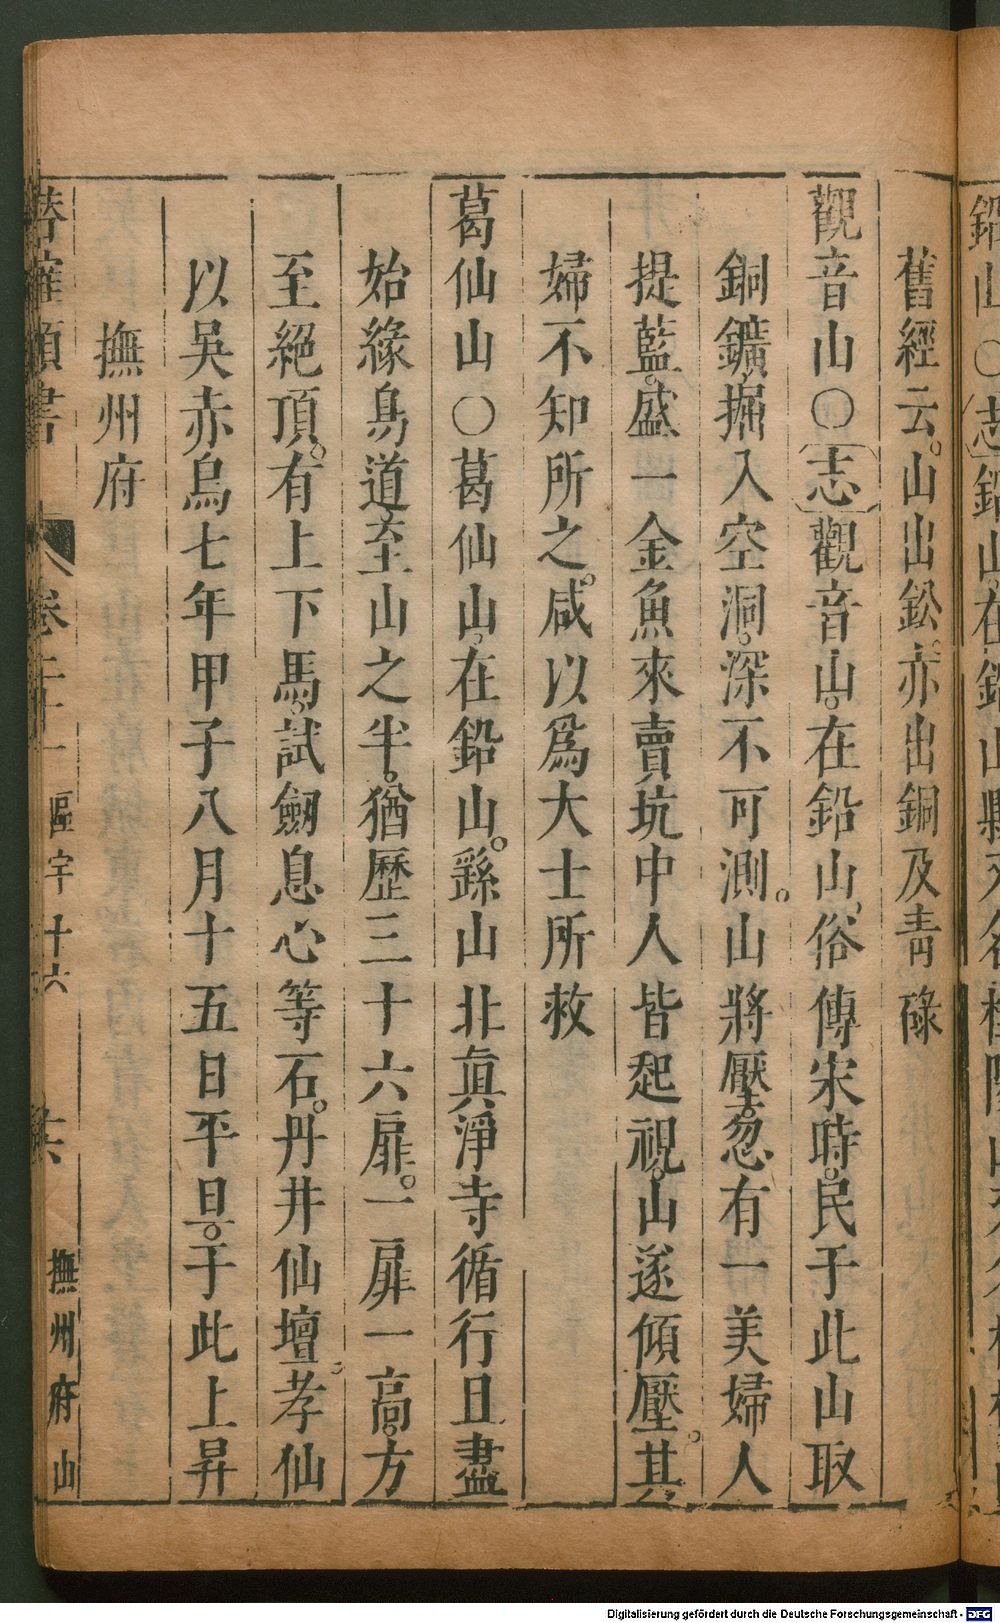 舊經云。山出鈆。亦出銅及青碌
觀音山〇志觀音山。在鉛山。俗傳宋時。民于此山取
銅鑛。掘入空洞。深不可測。山將壓。忽有一美婦人
提藍。盛一金魚來賣坑中人皆起視。山遂傾壓。其
婦不知所之。咸以爲大士所救
葛仙山〇葛仙山。在鉛山。繇山北眞淨寺循行且盡
始緣鳥道至山之半。猶歷三十六扉。一扉一高。方
至絕頂。有上下馬。試劒息心等石。丹井仙壇。孝仙
以吳赤烏七年甲子八月十五日平旦。于此上昇
撫州府
潛確類書 卷二十一 區宇十六 撫州府山
Digitalisierung gefördert durch die Deutsche Forschungsgemeinschaft - DFG